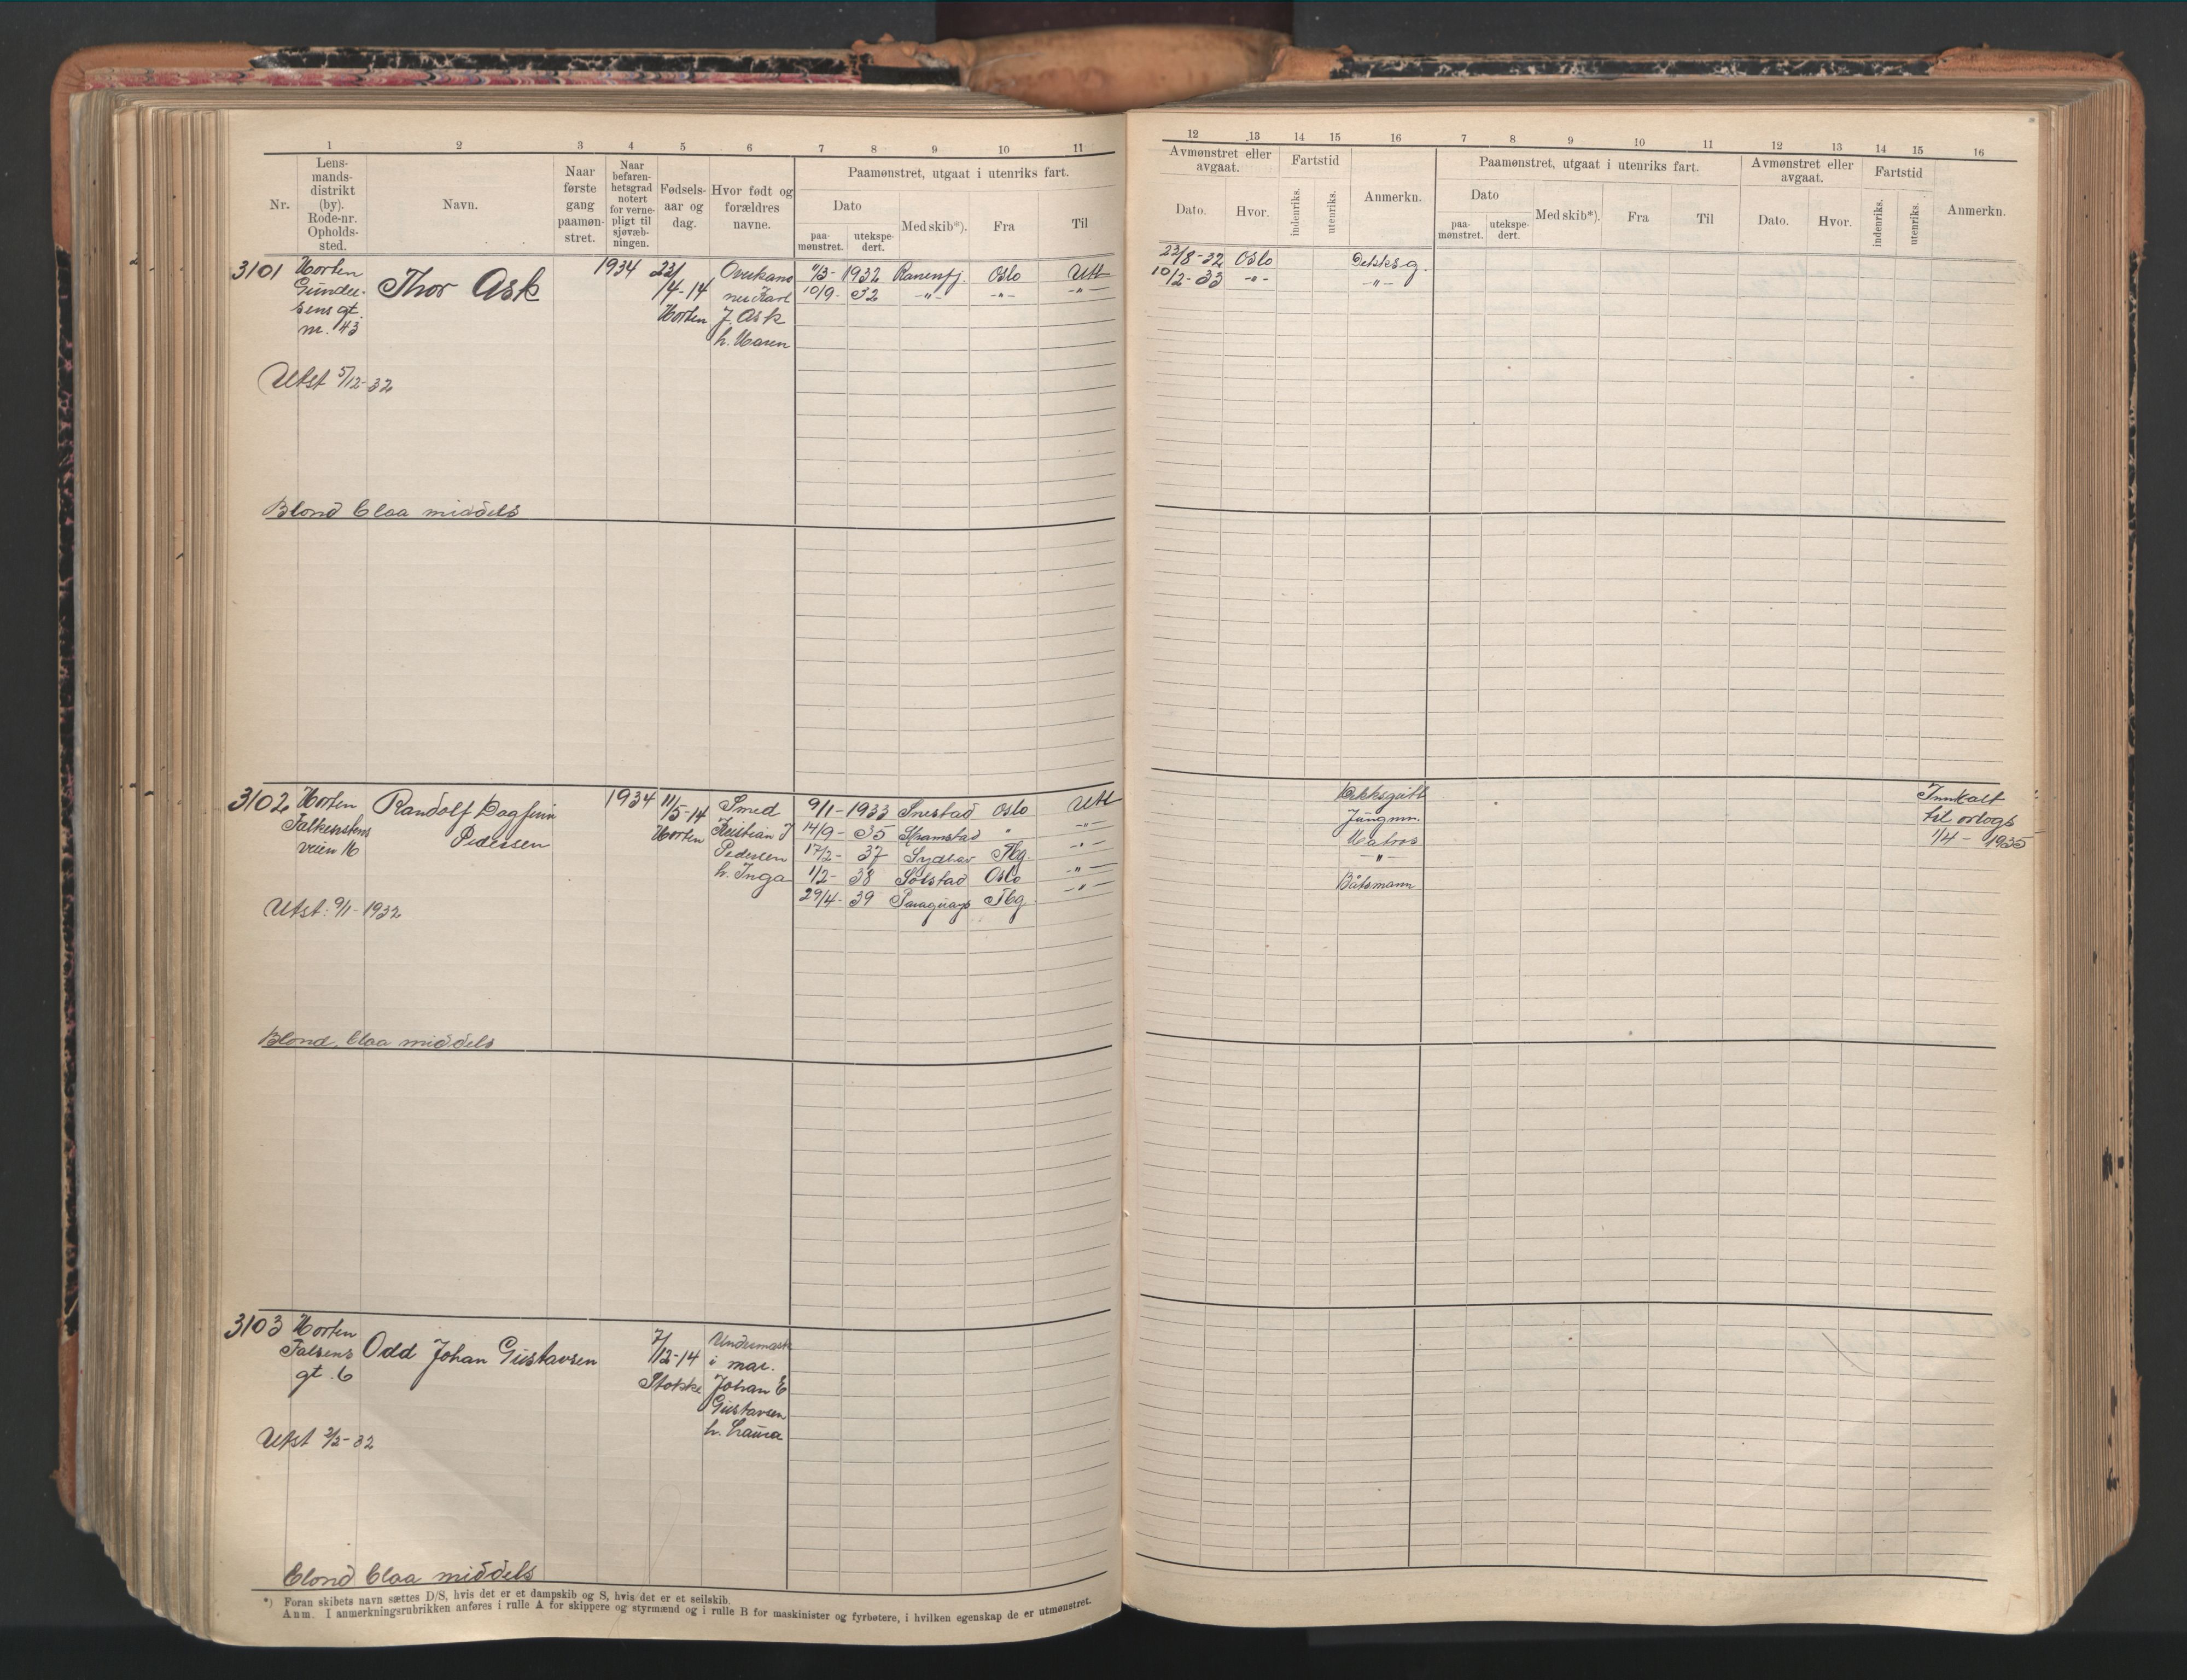 1 2 3 4 5 6 7 8 9 10 11
Nr. Lensmandsdistrikt (by). Rode-nr. Opholdssted. Navn. Naar første gang paamønstret. Naar befarenhetsgrad notert for vernepligt til sjøvæbningen. Fødselsaar og dag. Hvor født og forældres navne. Paamønstret, utgaat i utenriks fart.
Dato Med skib*). Fra Til
paamønstret. utekspedert.
12 13 14 15 16 7 8 9 10 11 12 13 14 15 16
Avmønstret eller avgaat. Fartstid Anmerkn. Paamønstret, utgaat i utenriks fart. Avmønstret eller avgaat. Fartstid Anmerkn.
Dato. Hvor. indenriks. utenriks. Dato Med skib*). Fra Til Dato. Hvor. indenriks. utenriks.
paamønstret. utekspedert.
3101 Horten Thor Ask 1934 23/ 1/3- 1932 Ranenfj. Oslo Utl 23/8-32 Oslo Dekksg.
Gunder- /4-14 10/9- 32 -"- -"- -"- 10/2-33 -"- -"-
sens gt. Horten J. Ask
nr. 43 h. Maren
Utst 5/12-32
Blond blaa middels
3102 Horten Randolf Dagfinn 1934 11/ Smed 9/1-1933 Snestad Oslo Utl Dekksgutt Innkalt
Falkenstens Pedersen /5-14 Kristian J 14/9- 35 Skramstad " -"- Jungm. til orlogs
veien 16 Horten Pedersen 17/2- 37 Sydhav Tbg. -"- Matros 1/4- 1935
h. Inga 1/2- 38 Solstad Oslo -"- -"-
29/4- 39 Paraguay Tbg -"- Båtsmann
Utst: 9/1-1932
Blond, blaa middels
3103 Horten Odd Johan Gustavsen 7/ Undermask
Falsens /12-14 i mar.
gt. 6 Stokke Johan E
Gustavsen
h. Laura
Utst 2/2-32
blond blaa middels
*) Foran skibets navn sættes D/S, hvis det er et dampskib og S, hvis det er et seilskib.
Anm. I anmerkningsrubrikken anføres i rulle A for skippere og styrmænd og i rulle B for maskinister og fyrbøtere, i hvilken egenskap de er utmønstret.